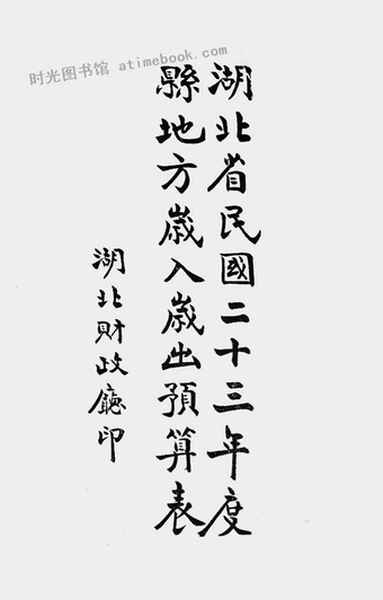 时光图书馆 atimebook.com
湖北省民國二十三年度
縣地方歲入歲出預算表
湖北財政廳印